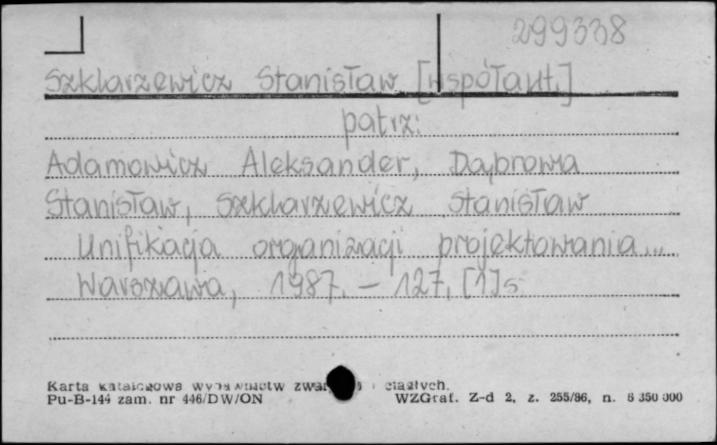 299338
Szklarzewicz Stanisław [współaut.]
patrz:
Adamowicz Aleksander, Dąbrowa
Stanisław, Szklarzewicz Stanisław
Unifikacja organizacji projektowania...
Warszawa, 1987. – 127, [1] s.
Karta katalogowa wydawnictw ciągłych.
Pu-B-144 zam. nr 446/DW/ON WZGraf. Z-d 2, z. 255/86, n. 6 350 000